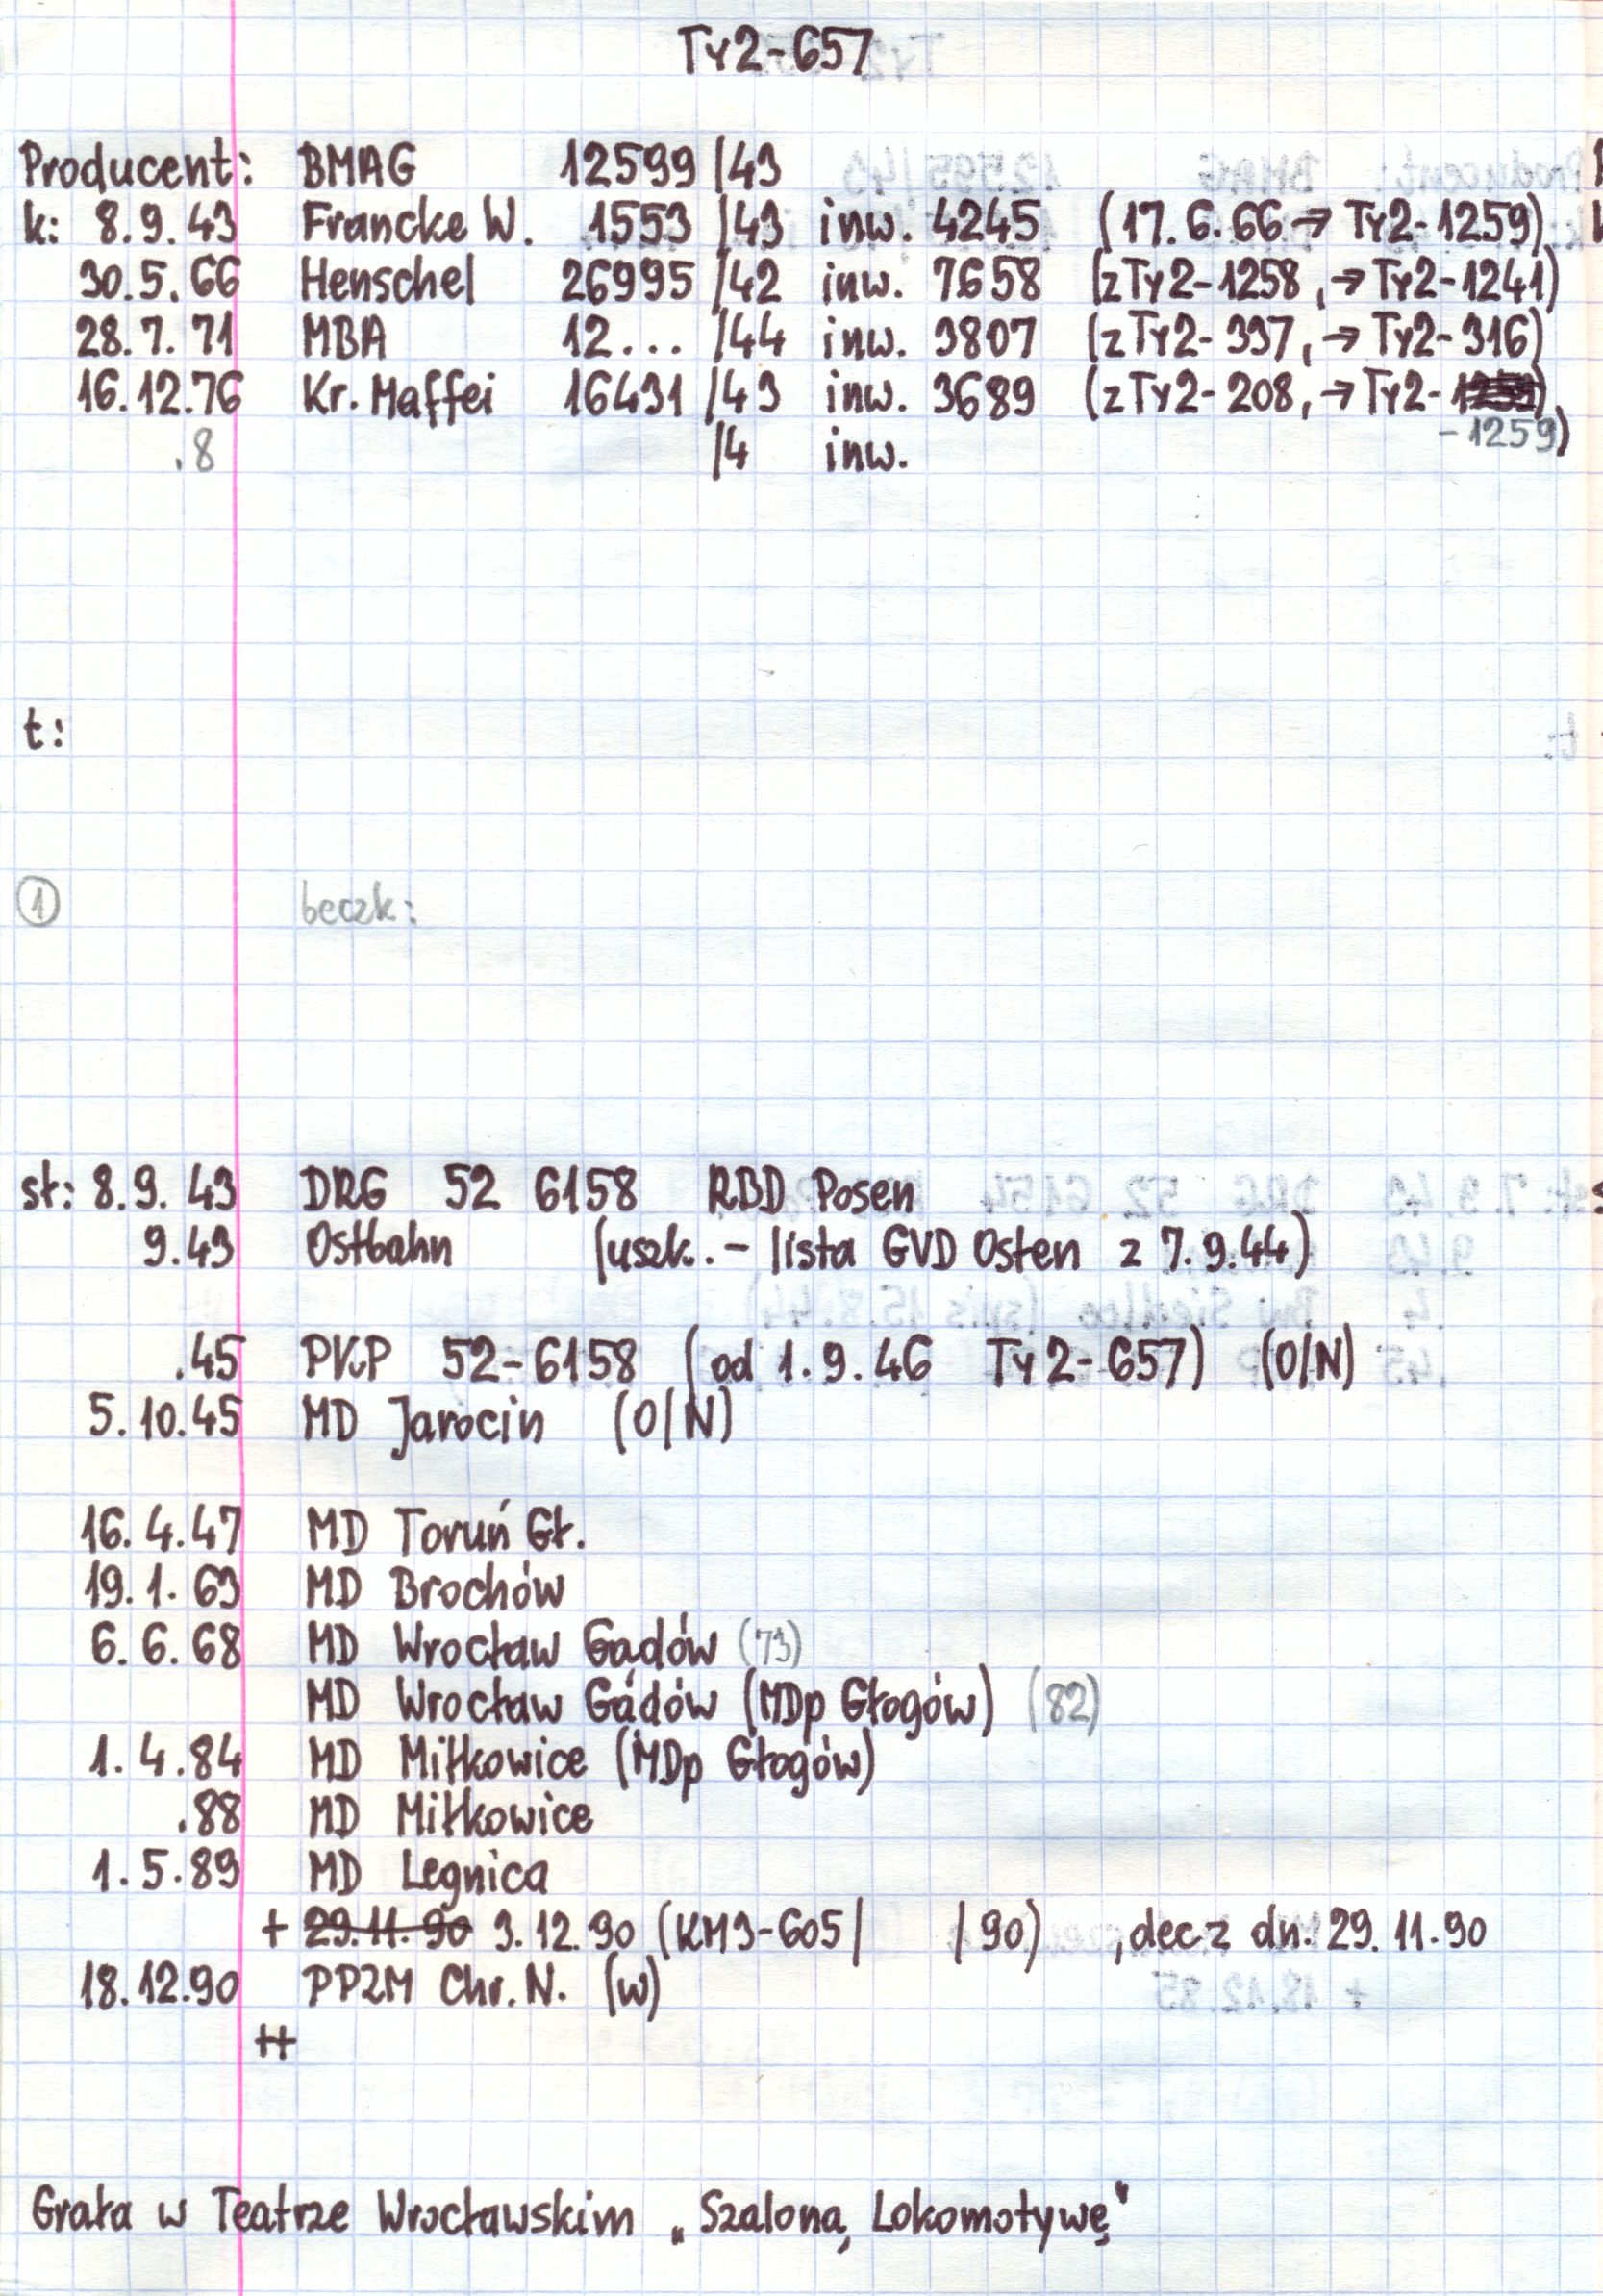 Ty2-657
Producent: BMAG 12599 /43
k: 8.9.43 Francke W. 1553 /43 inw. 4245 (17.6.66 → Ty2-1259)
30.5.66 Henschel 26995 /42 inw. 7658 (z Ty2-1258, → Ty2-1241)
28.7.71 MBA 12... /44 inw. 3807 (z Ty2-337, → Ty2-316)
16.12.76 Kr. Maffei 16431 /43 inw. 3689 (z Ty2-208, → Ty2-
-1259)
.8 /4 inw.
t:
1 beczk:
st: 8.9.43 DRG 52 6158 RBD Posen
9.43 Ostbahn (uszk. - lista GVD Osten z 7.9.44)
.45 PKP 52-6158 (od 1.9.46 Ty2-657) (O/N)
5.10.45 MD Jarocin (O/N)
16.4.47 MD Toruń Gł.
19.1.63 MD Brochów
6.6.68 MD Wrocław Gądów (73)
MD Wrocław Gądów (MDp Głogów) (82)
1.4.84 MD Miłkowice (MDp Głogów)
.88 MD Miłkowice
1.5.89 MD Legnica
+ 29.11.90 3.12.90 (KM3-605/ /90) , dec z dn. 29.11.90
18.12.90 PPZM Chr. N. (w)
++
Grała w Teatrze Wrocławskim „Szaloną Lokomotywę"